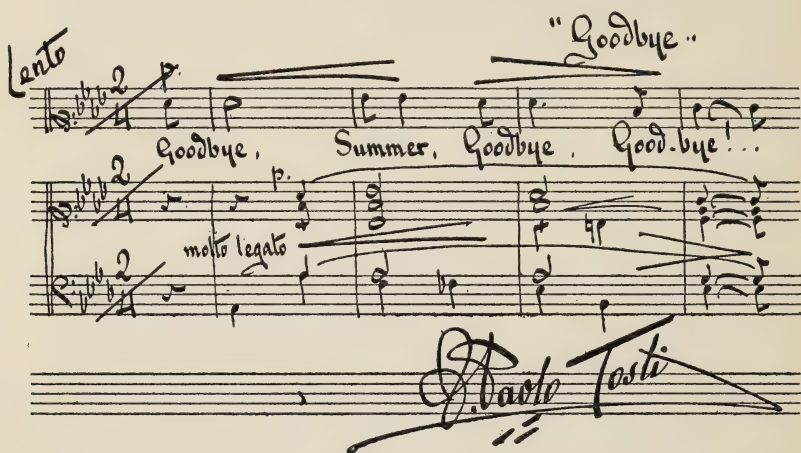 "Goodbye"
Lento
2
4
p.
Goodbye, Summer, Goodbye, Good-bye!...
2
4
p.
molto legato
2
4
F. Paolo Tosti